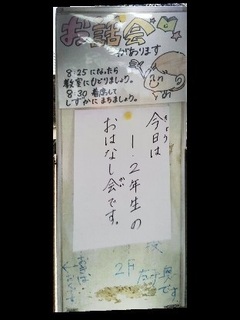 お話会
があります
8:25になったら
教室にもどりましょう。
8:30 着席して
しずかにまちましょう。
今日は
きょう
1.2年生の
おはなし会です。
かい
2F
です